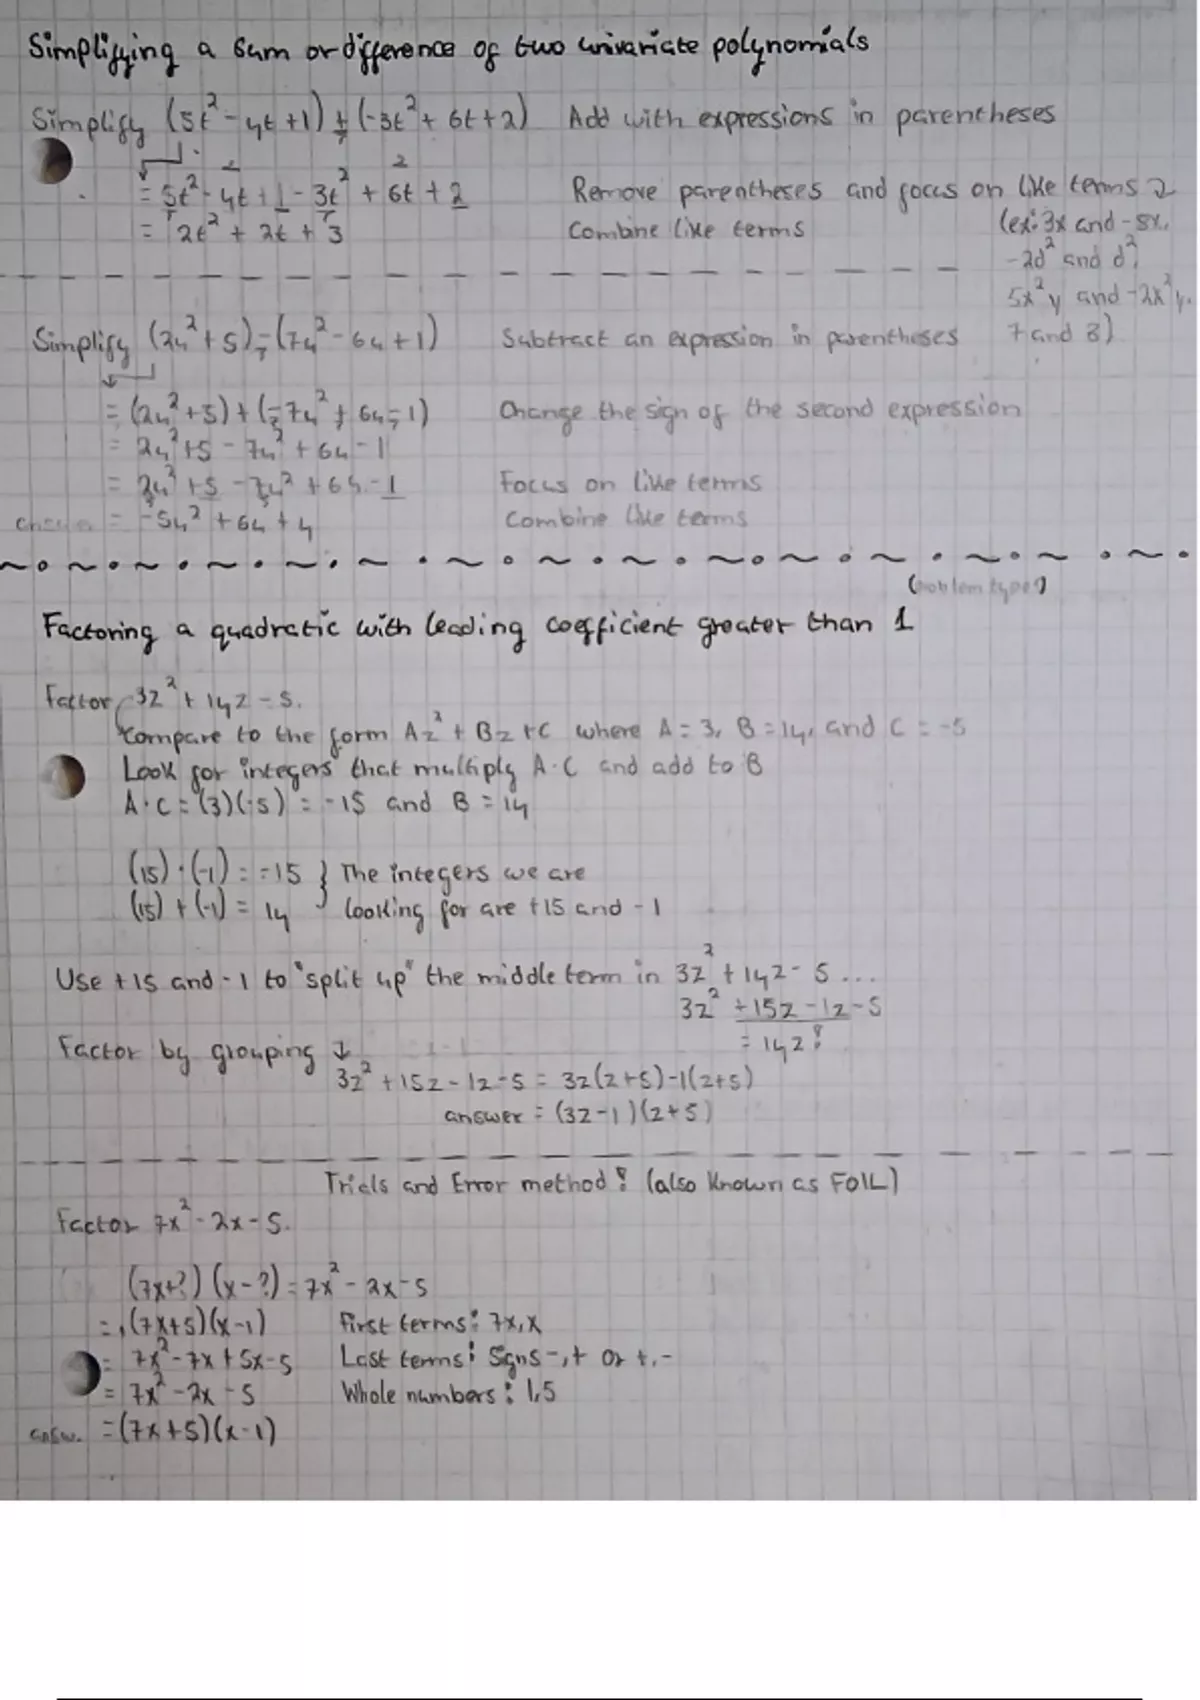 Simplifying a sum or difference of two univariate polynomials
Simplify (5t² - 4t + 1) + (-3t² + 6t + 2) Add with expressions in parentheses
= 5t² - 4t + 1 - 3t² + 6t + 2 Remove parentheses and focus on like terms
= 2t² + 2t + 3 Combine like terms (ex: 3x and -5x,
-2d² and d²,
5x²y and -2x²y,
7 and 3)
Simplify (2u² + 5) - (7u² - 6u + 1) Subtract an expression in parentheses
= (2u² + 5) + (-7u² + 6u - 1) Change the sign of the second expression
= 2u² + 5 - 7u² + 6u - 1
= 2u² + 5 - 7u² + 6u - 1 Focus on like terms
= -5u² + 6u + 4 Combine like terms
(problem type 1)
Factoring a quadratic with leading coefficient greater than 1
Factor 3z² + 14z - 5.
Compare to the form Az² + Bz + C where A = 3, B = 14, and C = -5
Look for integers that multiply A·C and add to B
A·C = (3)(-5) = -15 and B = 14
(15)·(-1) = -15 } The integers we are
(15) + (-1) = 14 looking for are +15 and -1
Use +15 and -1 to "split up" the middle term in 3z² + 14z - 5 ...
3z² + 15z - 1z - 5
= 14z!
Factor by grouping ↓
3z² + 15z - 1z - 5 = 3z(z+5) - 1(z+5)
answer = (3z-1)(z+5)
Trials and Error method! (also known as FOIL)
Factor 7x² - 2x - 5.
(7x+?)(x-?) = 7x² - 2x - 5
= (7x+5)(x-1) First terms: 7x, x
= 7x² - 7x + 5x - 5 Last terms: Signs -,+ or +,-
= 7x² - 2x - 5 Whole numbers: 1,5
answ. = (7x+5)(x-1)